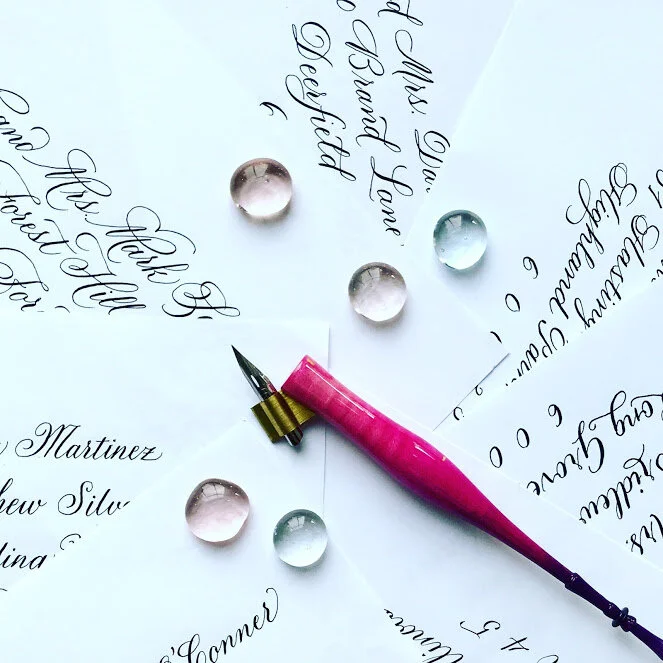 and Mrs. Mark
Forest Hill
For
d Mrs. Da
Brand Lane
Deerfield
6
Hastings
Highland Par
6 0 0
Long Grove
6 0 0
Mrs.
Martinez
hew Silv
lina
O'Conner
linois
4 5